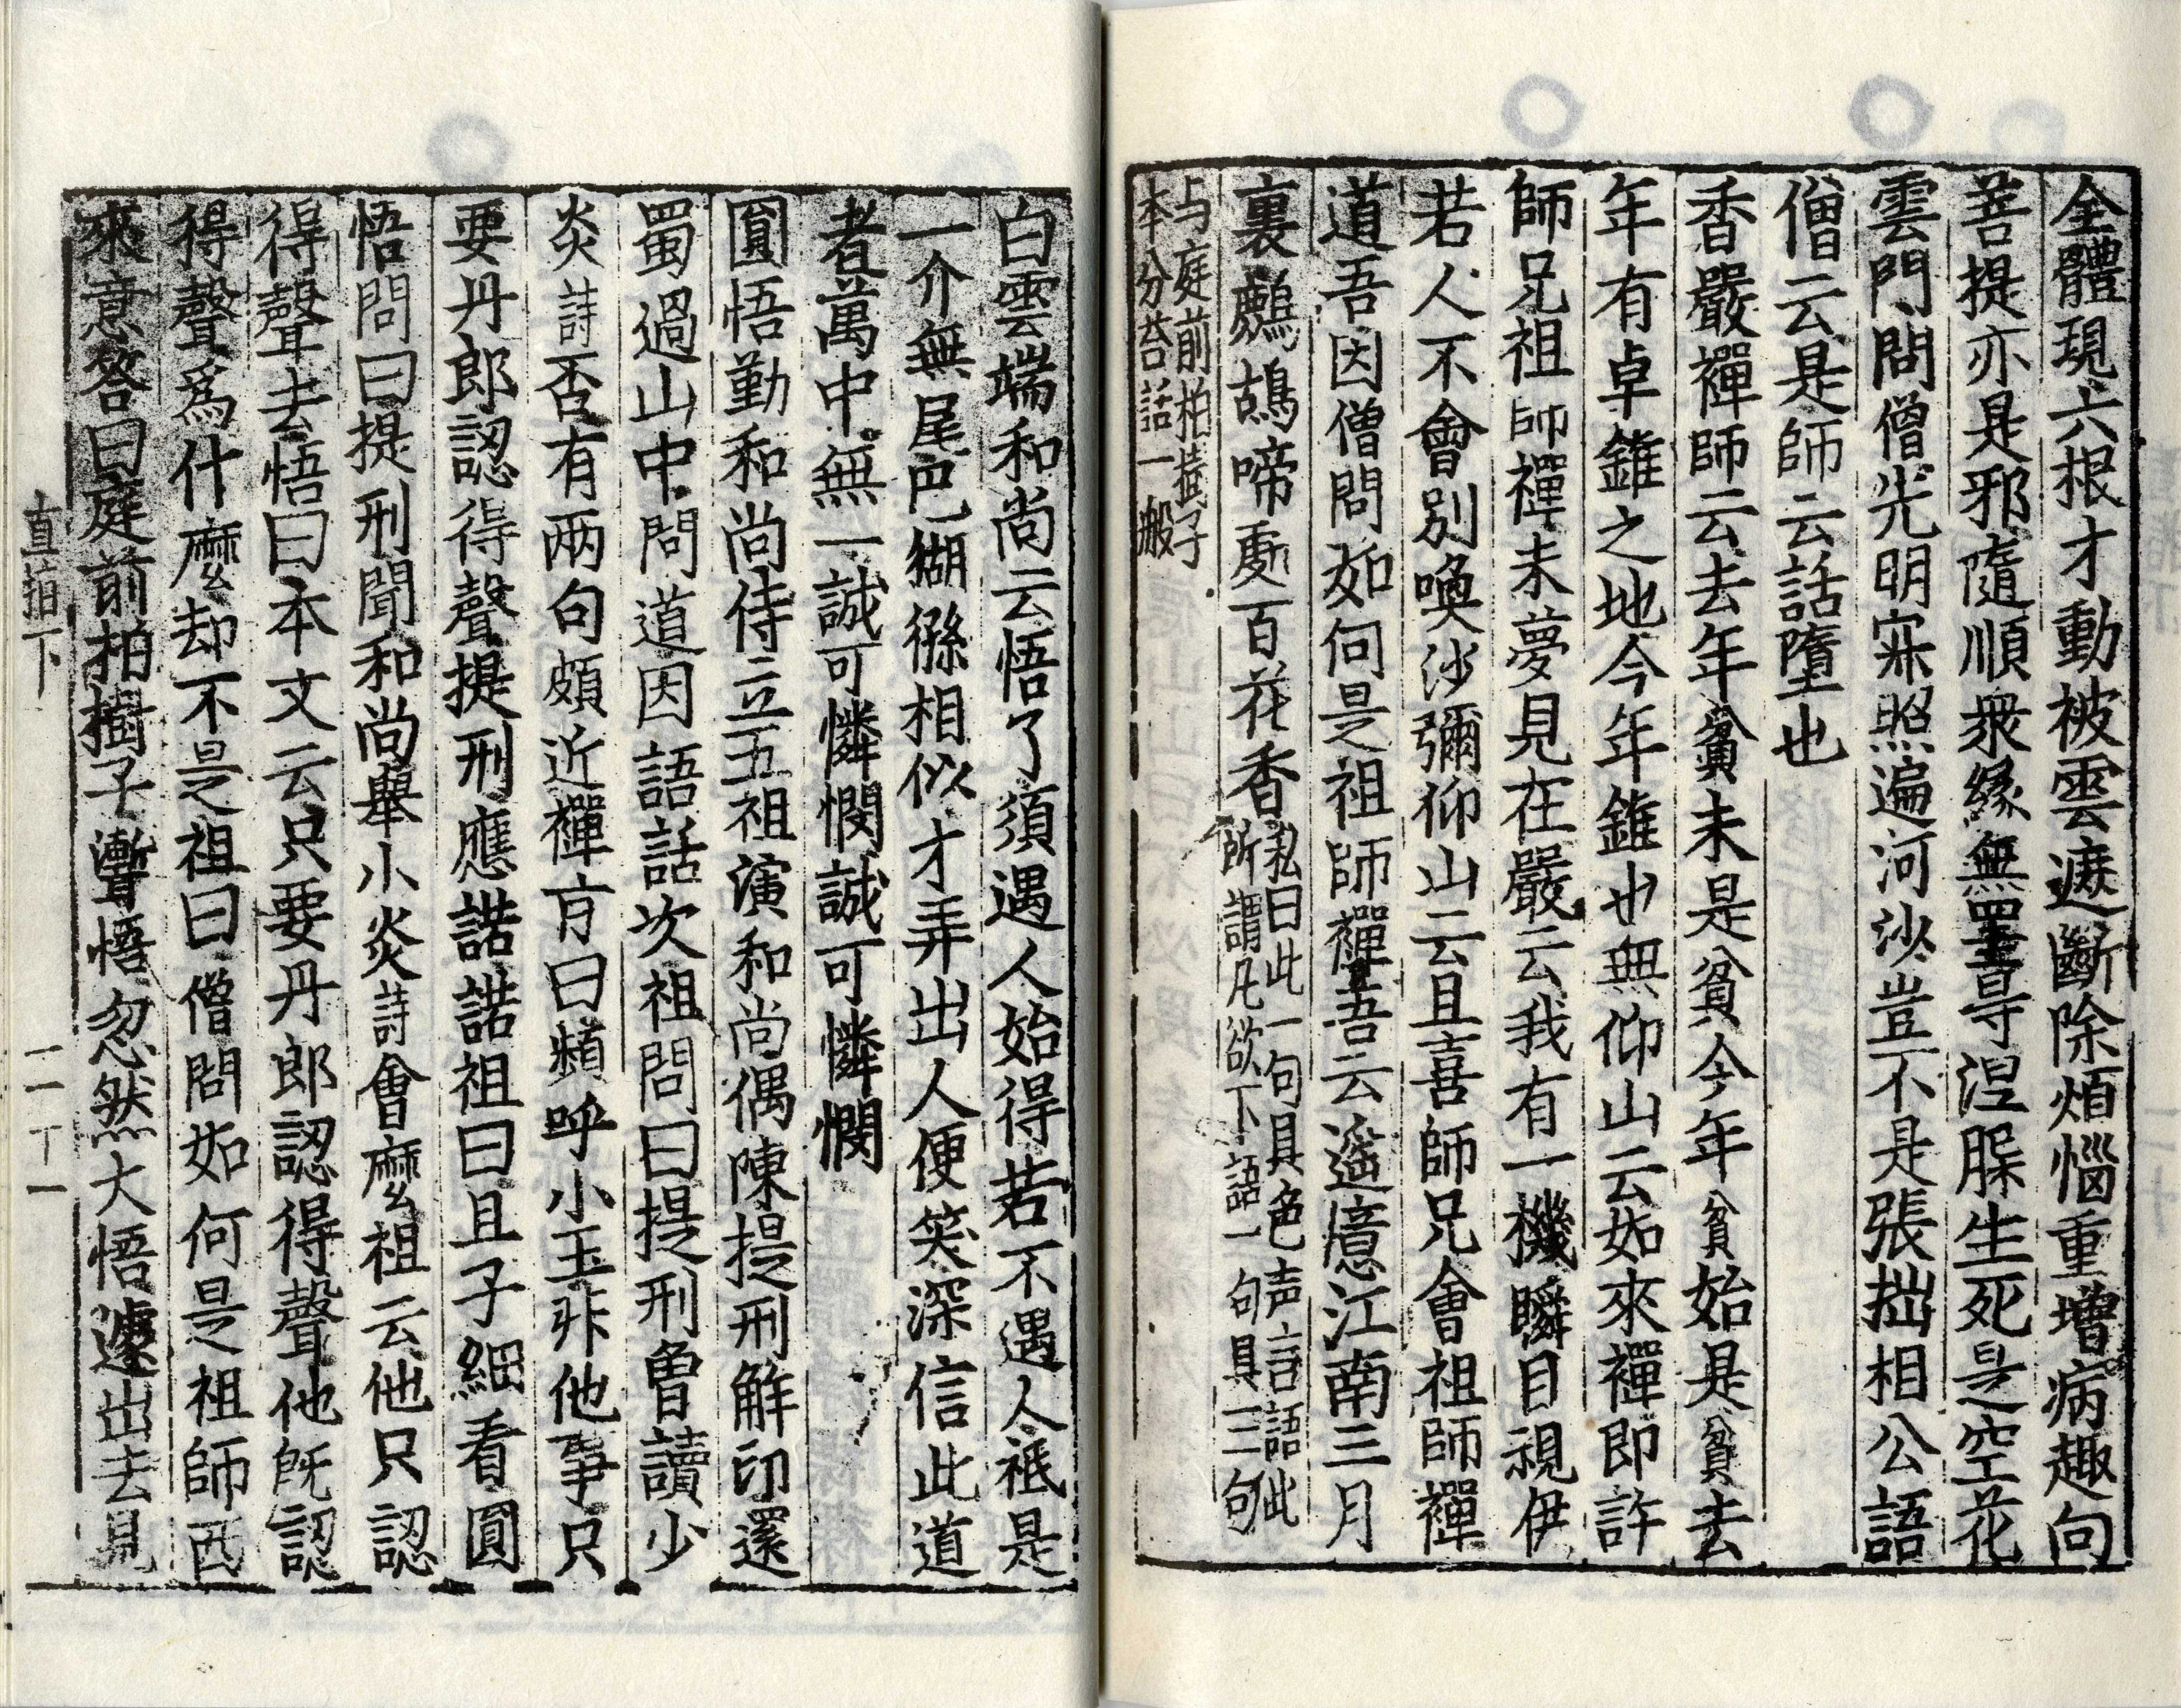 全體現六根才動被雲遮斷除煩惱重增病趣向
菩提亦是邪隨順衆緣無罣㝵涅脲生死是空花
雲門問僧光明寂照遍河沙豈不是張拙相公語
僧云是師云話墮也
香嚴禪師云去年貧未是貧今年貧始是貧去
年有卓錐之地今年錐也無仰山云如來禪即許
師兄祖師禪未夢見在嚴云我有一機瞬目視伊
若人不會別喚沙彌仰山云且喜師兄會祖師禪
道吾因僧問如何是祖師禪吾云遥憶江南三月
裏鷓鴣啼處百花香私曰此一句具色声言語此
所謂凡欲下語一句具三句
与庭前柏樹子
本分荅話一般
白雲端和尚云悟了須遇人始得若不遇人秖是
一介無尾巴猢猻相似才弄出人便笑深信此道
者萬中無一誠可憐憫誠可憐憫
圓悟勤和尚侍立五祖演和尚偶陳提刑解印還
蜀過山中問道因語話次祖問曰提刑曾讀少
炎詩否有兩句頗近禪方曰頻呼小玉非他事只
要丹郎認得聲提刑應諾諾祖曰且子細看圓
悟問曰提刑聞和尚舉小炎詩會麽祖云他只認
得聲去悟曰本文云只要丹郎認得聲他旣認
得聲爲什麽却不是祖曰僧問如何是祖師西
來意答曰庭前柏樹子聻悟忽然大悟遽出去見
直指下
二十一